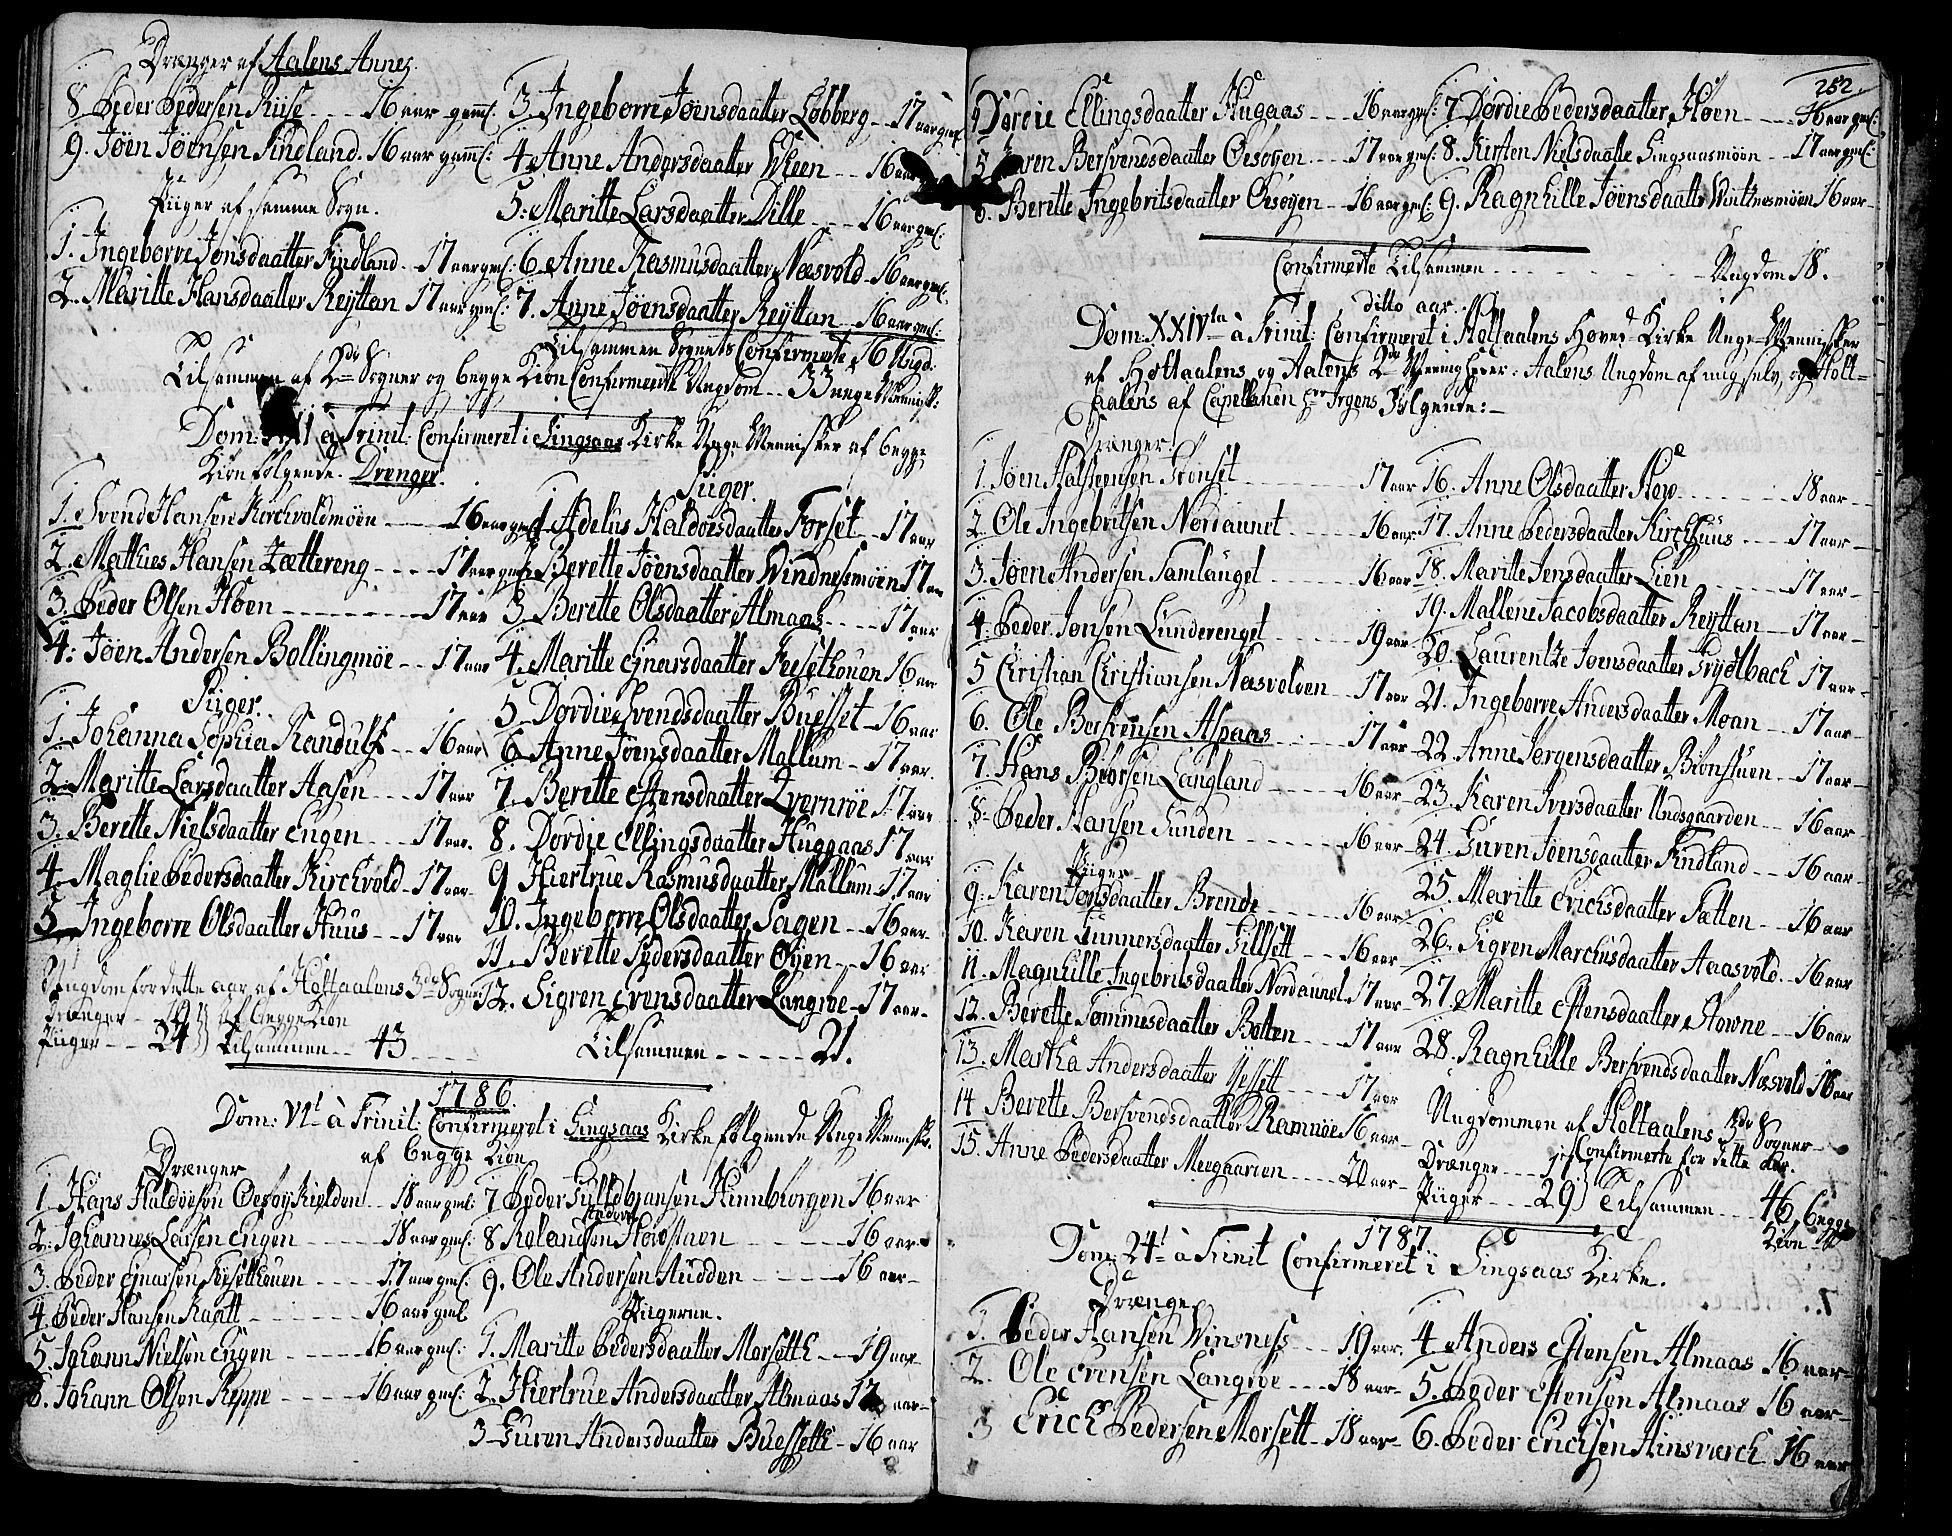 Drænger af Aalens Annex
8 Peder Pedersen Riise 16 aar gaml:
9. Jøen Jøensen Findland. 16 aar gaml:
Piiger af samme Sogn.
1. Ingeborre Jonsdaatter Findland 17 aar gml:
2. Maritte Hansdaatter Reÿttan 17 aar gml:
3. Ingeborre Jøensdaatter Løbberg 17 aar gml
4 Anne Andersdaatter Skeen 16 aar
5. Maritte Larsdaatter Dille 16 aar gml:
6 Anne Rasmusdaatter Næsvold 16 aar gml.
7. Anne Jøensdaatter Reÿttan 16 aar gml:
Tilsammen Sognets Confirmerte 16 Ungd:
Tilsammen af 2de Sogner og begge Kiøn Confirmerte Ungdom 33 unge Mennisk:
Dom: à Trinit: Confirmeret i Singsaas Kirke Unge Mennisker af begge
Kiøn følgende. Drenger.
1. Svend Hansen Kirchvoldmoen 16 aar gml
2. Mathies Hansen Lættereng 17 aar gml
3. Peder Olsen Høen 17 aar
4. Jøen Andersen Bollingmøe 17 aar
Piiger.
1. Johanna Sophia Randulf 16 aar
2. Maritte Larsdaatter Aasen 17 aar
3. Berette Nielsdaatter Engen 17 aar.
4. Maglie Pedersdaatter Kirchvold 17 aar
5. Ingeborre Olsdaatter Huus 17 aar
Ungdom for dette aar af Holtaalens 3de Sogner
Drænger 19 af begge Kiøn
Piiger 24 Tilsammen 43
Piiger.
1 Adelus Haldoesdaatter Forset 17 aar
2 Berette Jøensdaatter Windnesmoen 17 aar
3. Berette Olsdaatter Almaas 17 aar
4. Maritte Ejnarsdaatter Feesethouen 16 aar
5. Dordie Svendsdaatter Buesset 16 aar
6 Anne Jøensdaatter Mallum 17 aar.
7. Berette Estensdaatter Qvernrøe 17 aar
8. Dordie Ellingsdaatter Huggaas 17 aar
9 Hiertrue Rasmusdaatter Mallum 17 aar
10. Ingeborre Olsdaatter Sagen 16 aar
11. Berette Pedersdaatter Øyen 16 aar
12. Sigren Evensdaatter Langroe 17 aar
Tilsammen 21.
1786.
Dom: VIt à Trinit: Confirmeret i Singsaas Kirke følgende Unge Mennisk:
af begge Kiøn
Drænger
1 Hans Haldoesøn Oesøykielden 18 aar gml:
2. Johannes Larsen Engen 18 aar gml:
3. Peder Ejnarsen Feesethouen 17 aar gml:
4. Peder Hansen Raatt 16 aar gml
5. Johann Nielsen Engen 16 aar gml:
6. Johann Olsen Reppe 16 aar gml:
7 Peder Gulbransen Hinnborgen 16 aar
8 Roland Howstaen 16 aar
9. Ole Andersen Audden 16 aar
Piigerne.
1. Maritte Pedersdaatter Morsetth 19 aar
2. Hiertrue Andersdaatter Almaas 17 aar
3 Guren Andersdaatter Buessetth 16 aar
252.
4 Dordie Ellingsdaatter Hugaas 16 aar gml:
5 Karen Bersvendsdaatter Oesøyen 17 aar gml:
6. Berette Ingebritsdaatter Oesøyen 16 aar gml:
7 Dordie Pedersdaatter Høen 16 aar gml:
8. Kirsten Nielsdaatte Singsaasmoen 17 aar gml:
9. Ragnhille Jøensdaatte Wintznesmoen 16 aar
Confirmerte Tilsammen Ungdom 18.
ditto aar.
Dom: XXIVta à Trinit: Confirmeret i Holtaalens Hoved-Kirke Unge Mennisker
af Holtaalens og Aalens 2de Meenigheder: Aalens Ungdom af mig selv, og Holt-
aalens af Capellanen Hr Irgens Følgende:
Drænger
1. Jøen Halsteensen Gronset 17 aar
2. Ole Ingebritsen Nordaunet 16 aar
3. Jøen Andersen Samlauget 16 aar
4. Peder Jonsen Lunderenget 19 aar
5 Christian Christiansen Næsvolden 17 aar
6. Ole Bersvensen Aspaas 17 aar
7. Hans Biorsen Langland 16 aar
8. Peder Hansen Sunden 16 aar
Piiger
9. Karen Jonsdaatter Brende 16 aar
10. Karen Gunnersdaatter Gillsett 16 aar
11. Magnhille Ingebritsdaatter Nordaunet 17 aar
12. Berette Tommesdaatter Bolten 17 aar
13. Martha Andersdaatter 17 aar
14 Berette Bersvendsdaatter Ramnøe 16 aar
15. Anne Pedersdaatter Meegaarden 20 aar
16. Anne Olsdaatter How 18 aar
17. Anne Pedersdaatter Kirchhuus 17 aar
18. Maritte Jensdaatter Lien 17 aar
19. Mallene Jacobsdaatter Reÿttan 17 aar
20. Laurentze Joensdaatter Grydtbach 17 aar
21. Ingeborre Andersdaatter Moan 17 aar
22. Anne Jørgensdaatter Biønstuen 17 aar
23. Karen Iversdaatter Undsgaarden 16 aar
24. Guren Jøensdaatter Findland 16 aar
25. Maritte Erichsdaatter Fætten 16 aar
26. Sigren Marchusdaatter Aasvold 16 aar
27. Maritte Estensdaatter Howne 16 aar
28. Ragnhille Bersvendsdaatter Næsvold 16 aar
Ungdommen af Holtaalens 3de Sogner
Confirmerte for dette Aar.
Drænger 17
Piiger 29 Tilsammen 46 begge Kiøn
1787
Dom: 24t à Trinit Confirmeret i Singsaas Kirke.
Drænger
1. Peder Hansen Winsness 19 aar.
2. Ole Evensen Langrøe 18 aar
3 Erich Pedersen Morsett 18 aar
4 Anders Estensen Almaas 16 aar
5. Peder Estensen Almaas 16 aar
6. Peder Erichsen Hinsværch 16 aar